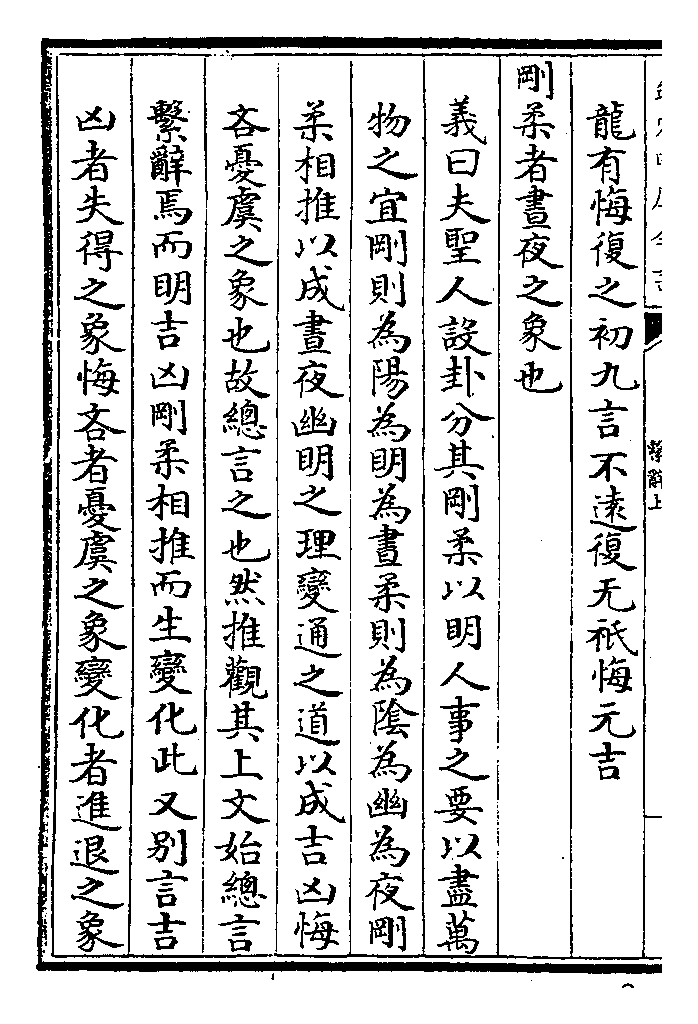 龍有悔復之初九言不遠復无祇悔元吉
剛柔者晝夜之象也
義曰夫聖人設卦分其剛柔以明人事之要以盡萬
物之宜剛則為陽為明為晝柔則為陰為幽為夜剛
柔相推以成晝夜幽明之理變通之道以成吉凶悔
吝憂虞之象也故總言之也然推觀其上文始總言
繫辭焉而明吉凶剛柔相推而生變化此又别言吉
凶者失得之象悔吝者憂虞之象變化者進退之象
繫辭上